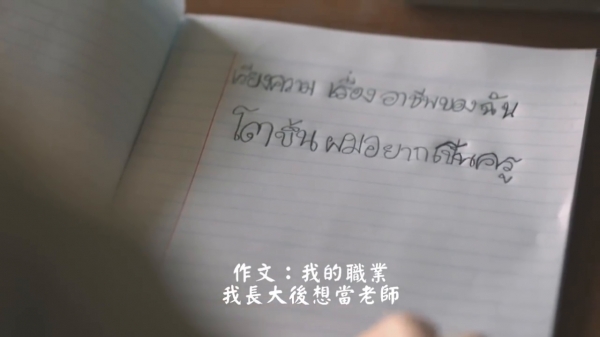 เรียงความ เรื่อง อาชีพของฉัน
โตขึ้น ผมอยากเป็นครู
作文：我的職業
我長大後想當老師